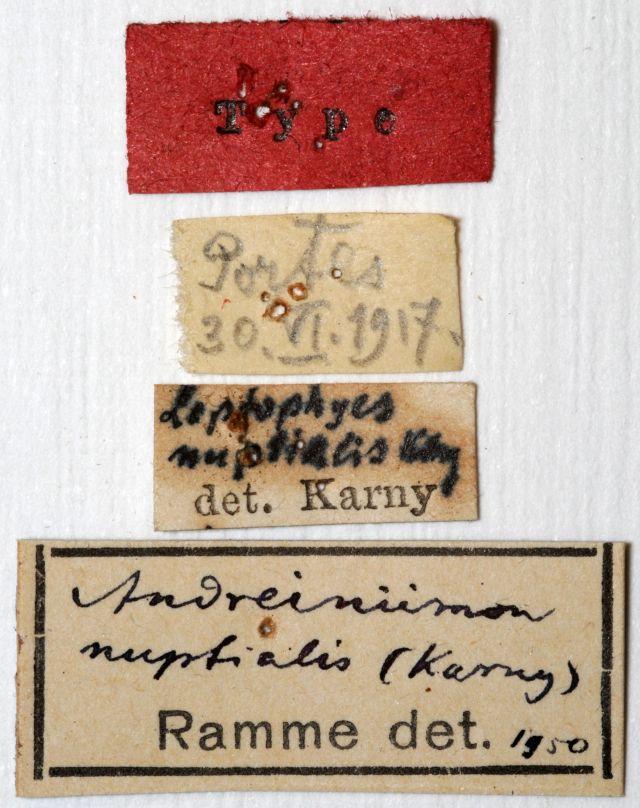 Type
Portes
30. VI. 1917.
Leptophyes
nuptialis Kny
det. Karny
Andreiniimon
nuptialis (Karny)
Ramme det. 1950